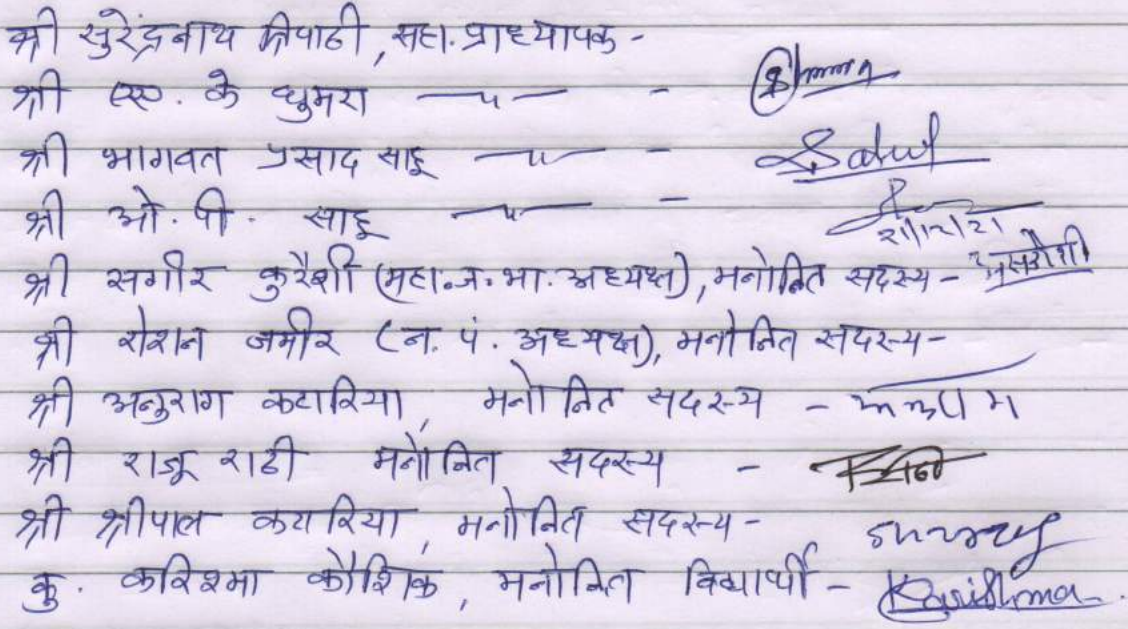 श्री सुरेंद्रनाथ त्रिपाठी, सहा. प्राध्यापक -
श्री एस. के धुमरा —"— -
श्री भागवत प्रसाद साहू —"— -
श्री ओ. पी. साहू —"— - 21/12/21
श्री सगीर कुरैशी (महा.ज.भा. अध्यक्ष), मनोनित सदस्य -
श्री रोशन जमीर (न. पं. अध्यक्ष), मनोनित सदस्य -
श्री अनुराग कटारिया, मनोनित सदस्य -
श्री राजू राठी मनोनित सदस्य -
श्री श्रीपाल कटारिया, मनोनित सदस्य -
कु. करिश्मा कौशिक, मनोनित विद्यार्थी - Karishma